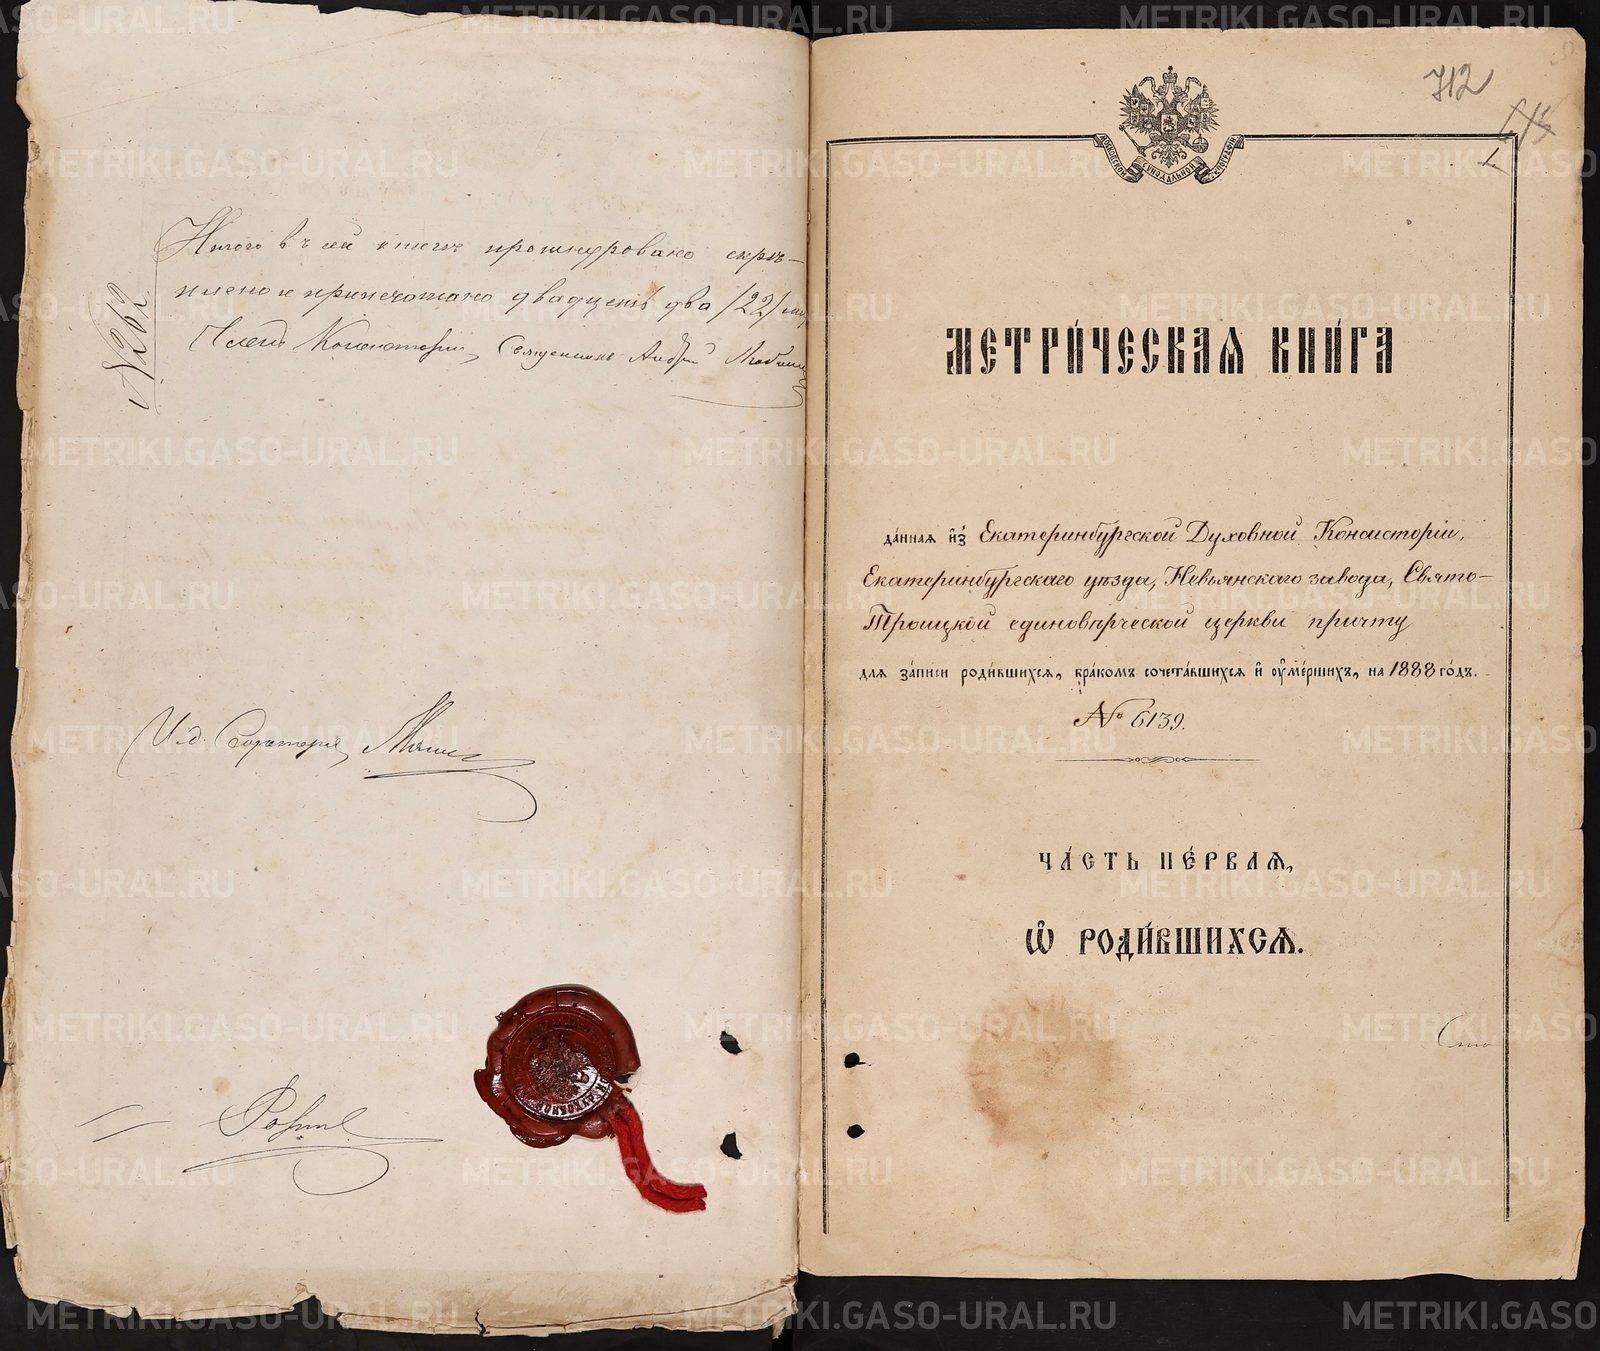 № 262
Итого въ сей книгѣ прошнуровано скрѣ-
плено и припечатано двадцать два /22/
Членъ Консисторіи, Священникъ
И. д. Секретаря
712
1
МОСКОВСКОЙ СѴНОДАЛЬНОЙ ТИПОГРАФІИ
МЕТРИ́ЧЕСКАѦ КНИ́ГА
да́ннаѧ и҆з̾ Екатеринбургской Духовной Консисторіи,
Екатеринбургскаго уѣзда, Невьянскаго завода, Свято-
Троицкой единовѣрческой церкви причту
длѧ за́писи роди́вшихсѧ, бра́комъ сочета́вшихсѧ и҆ оу҆ме́ршихъ, на 1888 го́дъ.
№ 6139.
ЧА́СТЬ ПЕ́РВАѦ,
Ѡ҆ РОДИ́ВШИХСѦ.
METRIKI.GASO-URAL.RU